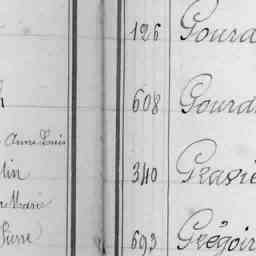 126 Gourd
608 Gourd
Anne Louis
lin 340 Gravie
Marie
Pierre 693 Grégoir